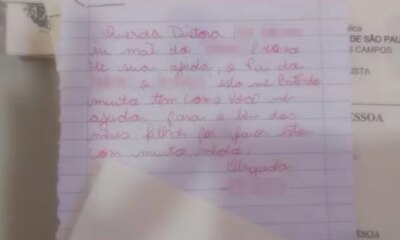 Querida Diretora
eu mãe do preciso
de sua ajuda, o Pai dos
o está me Batendo
muito tem como você me
ajudar para o bem dos
meus filhos por favor estou
com muito medo.
Obrigada
DE SÃO PAU
S CAMPOS
ISTA
ESSOA
ÊNCIA